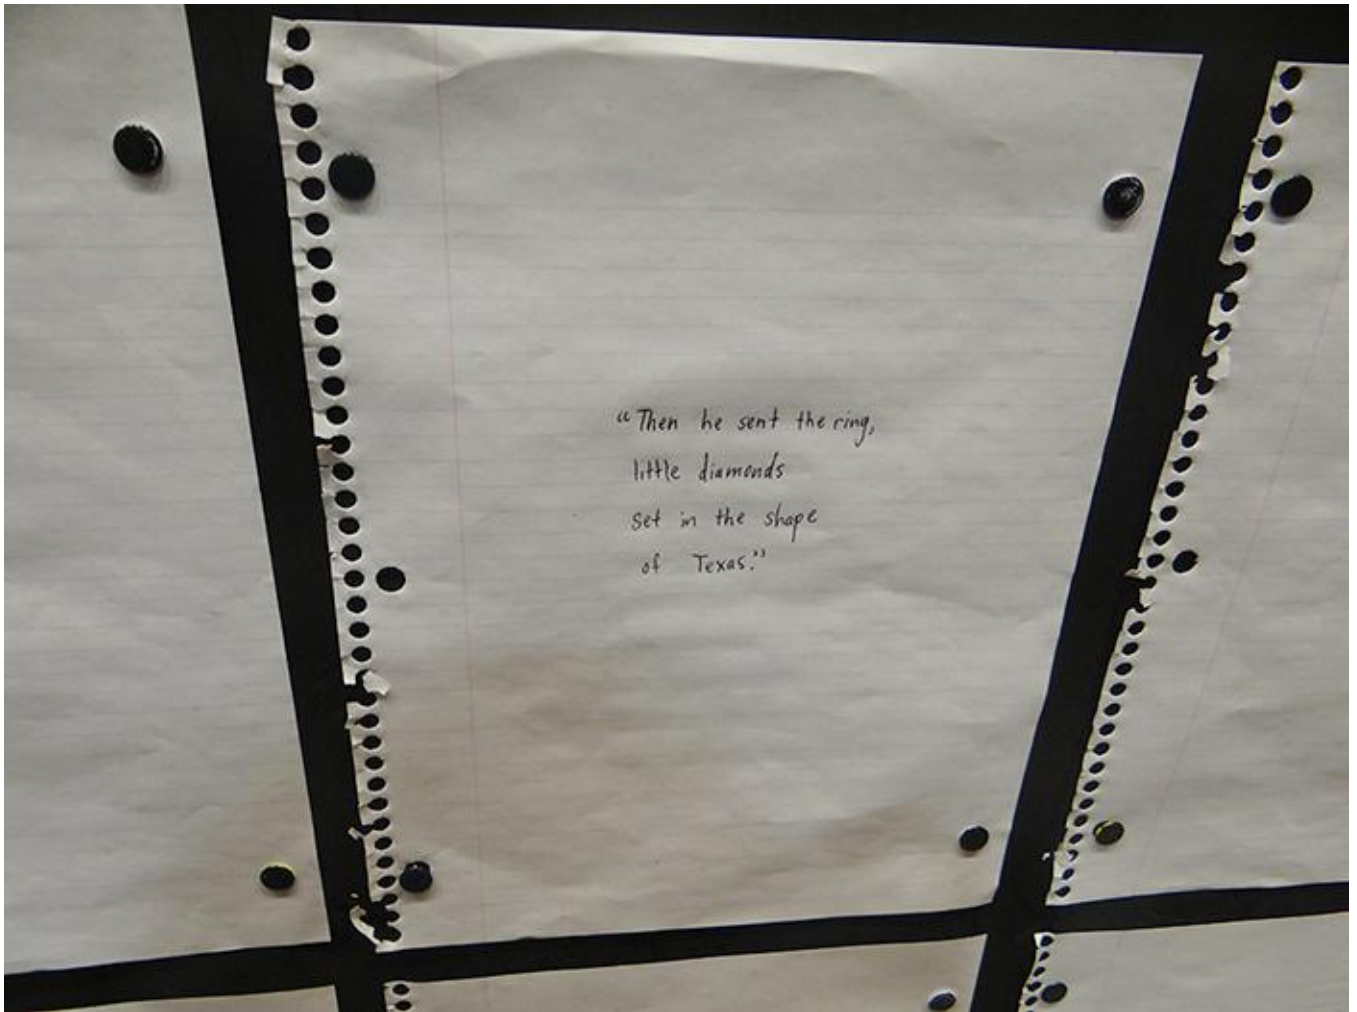 “Then he sent the ring,
little diamonds
set in the shape
of Texas.”